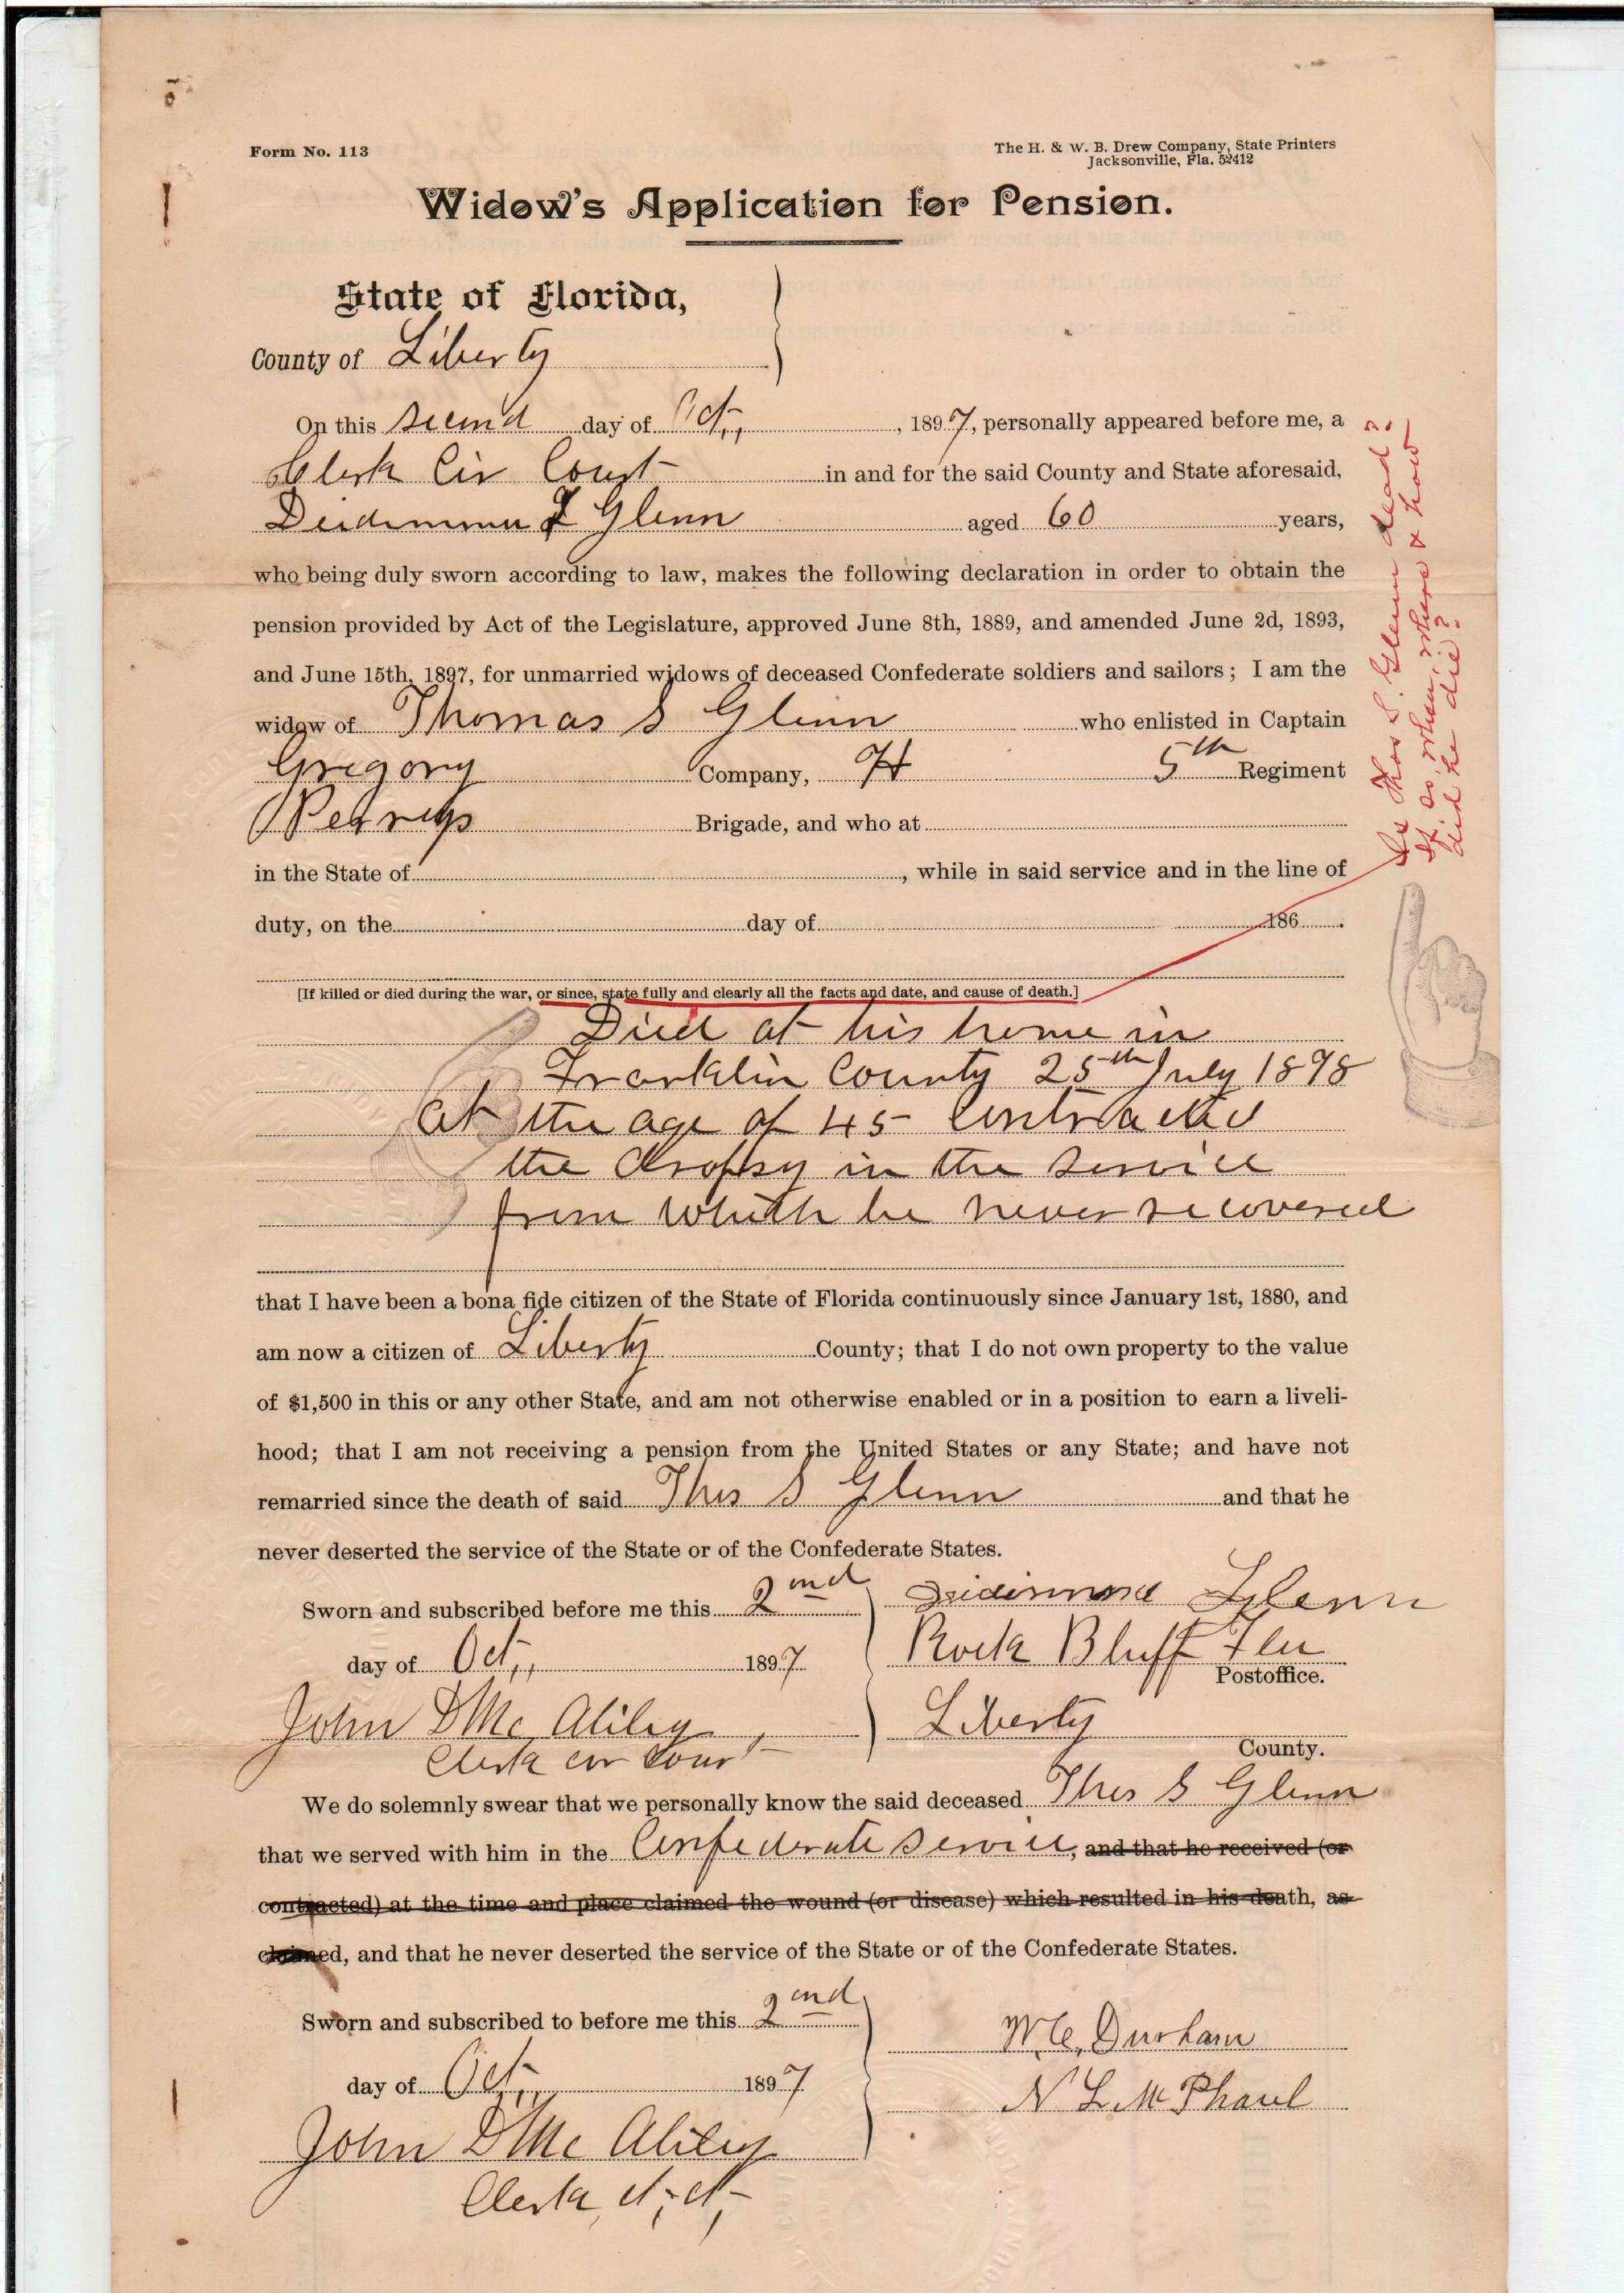 Form No. 113
The H. & W. B. Drew Company, State Printers
Jacksonville, Fla. 52412
Widow's Application for Pension.
State of Florida,
County of Liberty
On this second day of Oct., 1897, personally appeared before me, a
Clerk Cir Court in and for the said County and State aforesaid,
Glenn aged 60 years,
who being duly sworn according to law, makes the following declaration in order to obtain the
pension provided by Act of the Legislature, approved June 8th, 1889, and amended June 2d, 1893,
and June 15th, 1897, for unmarried widows of deceased Confederate soldiers and sailors; I am the
widow of Thomas S Glenn who enlisted in Captain
Gregory Company, H 5th Regiment
Perrys Brigade, and who at
in the State of , while in said service and in the line of
duty, on the day of 186 .
[If killed or died during the war, or since, state fully and clearly all the facts and date, and cause of death.]
Is Thos S. Glenn dead?
If so, when, where & how
did he die?
Died at his home in
Franklin County 25th July 1878
at the age of 45 contracted
the dropsy in the service
from which he never recovered
that I have been a bona fide citizen of the State of Florida continuously since January 1st, 1880, and
am now a citizen of Liberty County; that I do not own property to the value
of $1,500 in this or any other State, and am not otherwise enabled or in a position to earn a liveli-
hood; that I am not receiving a pension from the United States or any State; and have not
remarried since the death of said Thos S Glenn and that he
never deserted the service of the State or of the Confederate States.
Sworn and subscribed before me this 2nd Glenn
day of Oct., 1897 Rock Bluff Fla
Postoffice.
John D Mc Aliley, Liberty
Clerk cir Court County.
We do solemnly swear that we personally know the said deceased Thos S Glenn
that we served with him in the Confederate service, and that he received (or
contracted) at the time and place claimed the wound (or disease) which resulted in his death, as
claimed, and that he never deserted the service of the State or of the Confederate States.
Sworn and subscribed to before me this 2nd W. C. Durham
day of Oct., 1897 N L McPhaul
John D Mc Aliley
Clerk, ct, ct,